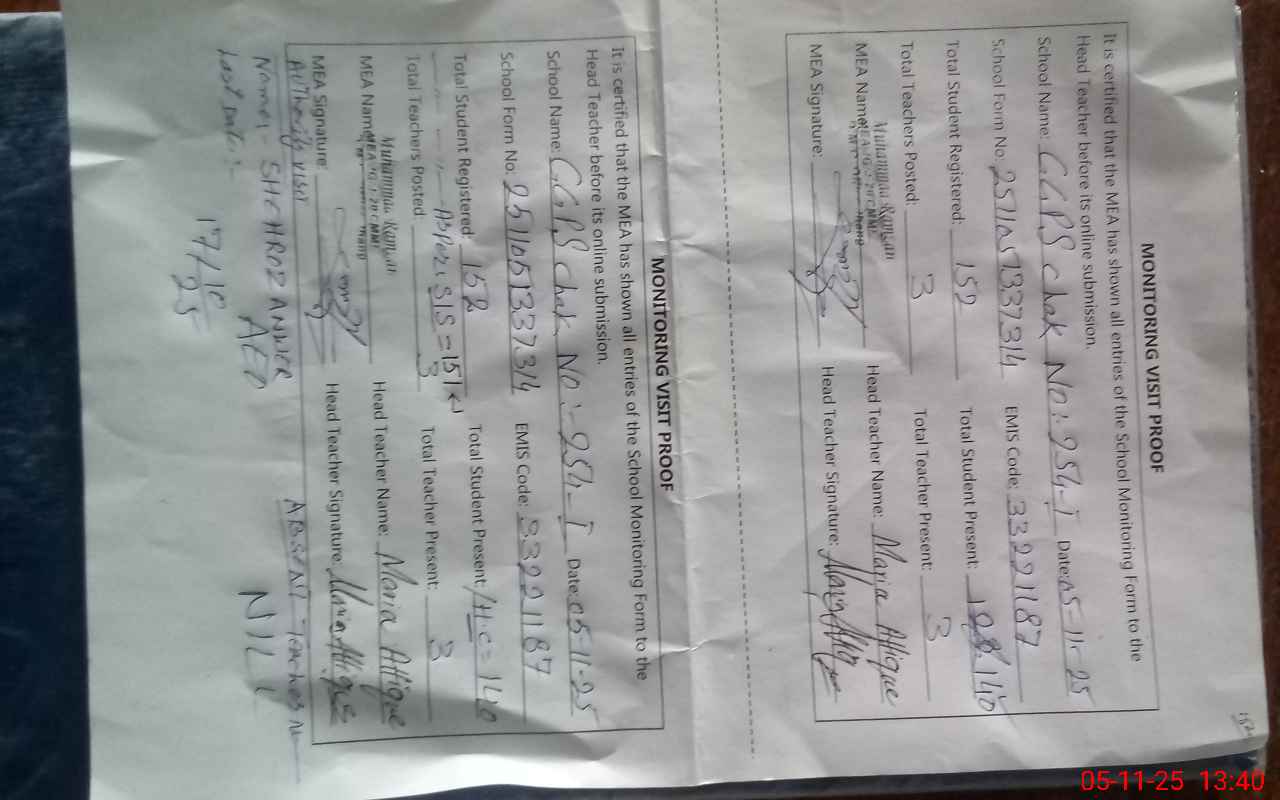 MONITORING VISIT PROOF
It is certified that the MEA has shown all entries of the School Monitoring Form to the
Head Teacher before its online submission.
School Name: GGPS chak No:-254-I Date: 05-11-25
School Form No: 251105133734 EMIS Code: 33221187
Total Student Registered: 152 Total Student Present: 140
Total Teachers Posted: 3 Total Teacher Present: 3
MEA Name: Muhammad Ramzan Head Teacher Name: Maria Attique
MEA Signature: Head Teacher Signature:
MONITORING VISIT PROOF
It is certified that the MEA has shown all entries of the School Monitoring Form to the
Head Teacher before its online submission.
School Name: GGPS chak No:-254-I Date: 05-11-25
School Form No: 251105133734 EMIS Code: 33221187
Total Student Registered: 152 Total Student Present: H.C= 140
As Per SIS = 151
Total Teachers Posted: 3 Total Teacher Present: 3
MEA Name: Muhammad Ramzan Head Teacher Name: Maria Attique
MEA Signature: Head Teacher Signature: Maria Attique
Authority visit ABSENT Teaches
Name:- SHEHROZ ANWER NILL
AEO
Last Date:-
17/10
25
152
05-11-25 13:40